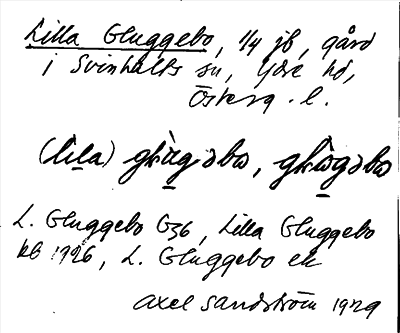 Lilla Gluggebo, 1/4 jb, gård
i Svinhults sn, Ydre hd,
Österg. l.
(lila) glugəbo, gløgəbo
L. Gluggebo G36, Lilla Gluggebo
kb 1926, L. Gluggebo ek
Axel Sandström 1929